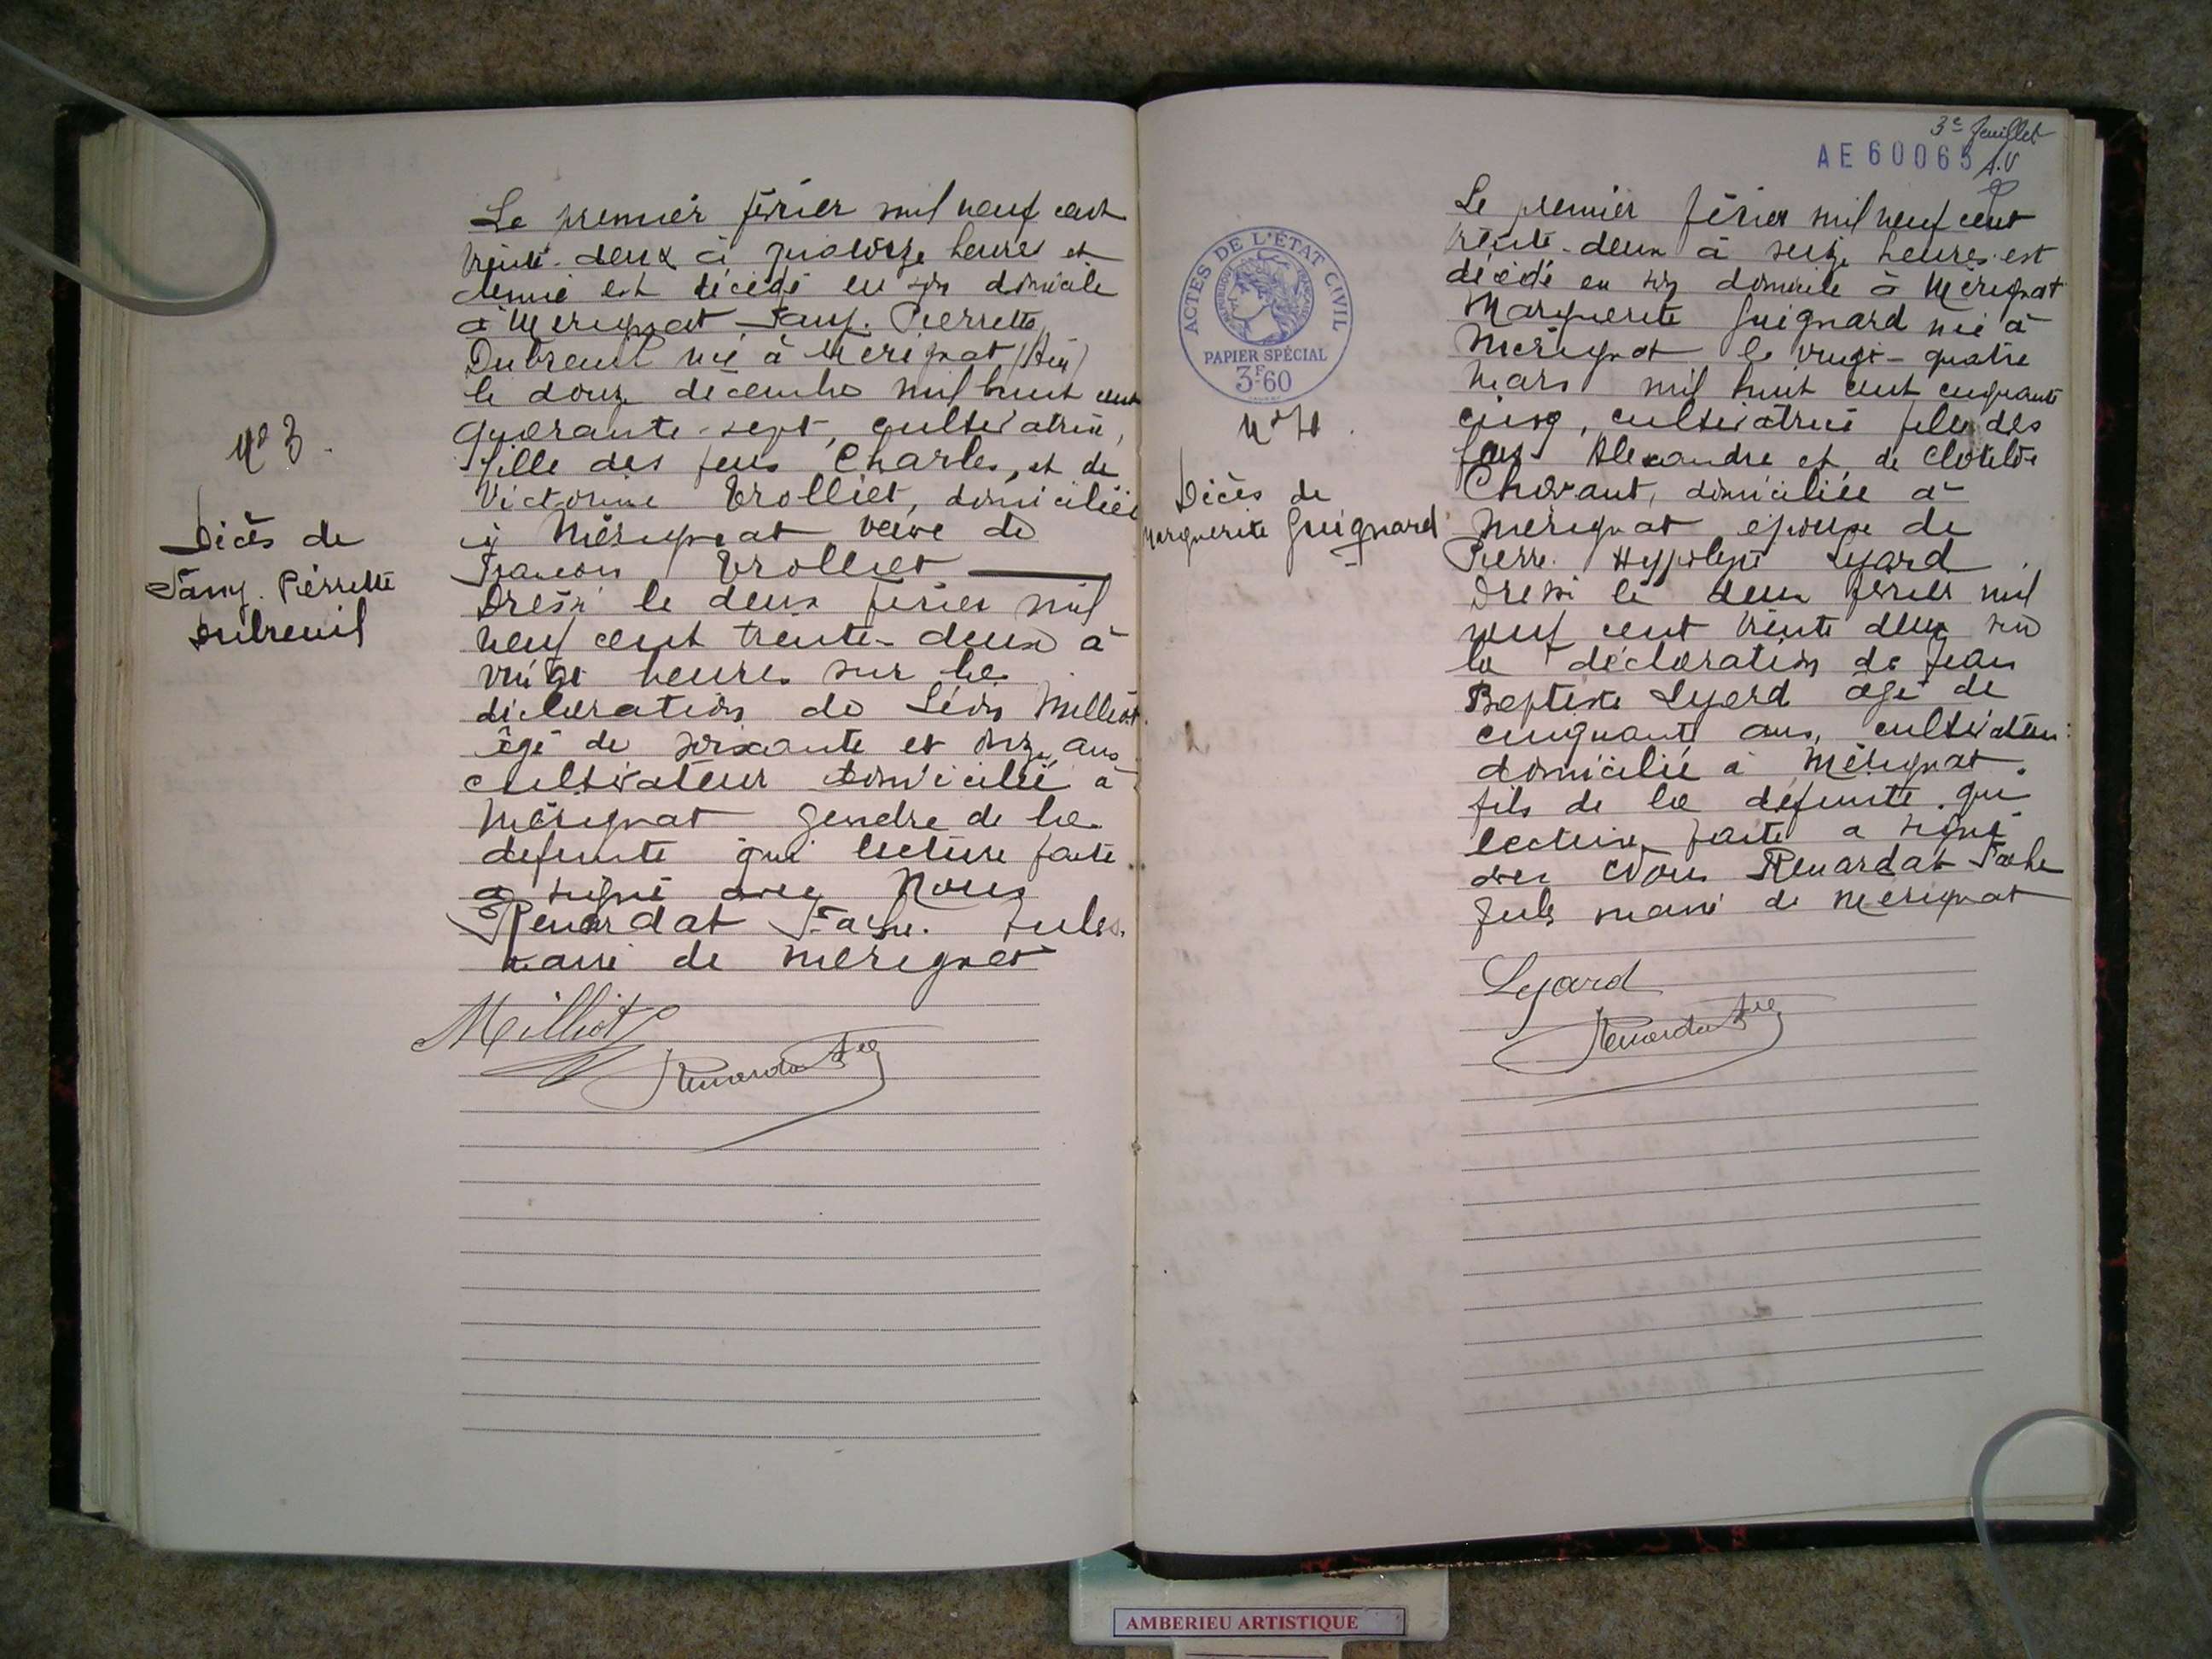 Le premier février mil neuf cent
trente-deux à quatorze heures et
demie est décédé en son domicile
à Mérignat Fany. Pierrette
Dubreuil née à Mérignat (Ain)
le douze décembre mil huit cent
quarante-sept, cultivatrice,
fille des feus Charles, et de
Victorine Trolliet, domiciliée
à Mérignat veuve de
François Trolliet
Dressé le deux février mil
neuf cent trente-deux à
vingt heures sur la
déclaration de Léon Milliot
âgé de soixante et onze ans
cultivateur domicilié à
Mérignat gendre de la
defunte qui lecture faite
a signé avec Nous
Renardat Fache. Jules.
maire de Mérignat
Milliot
Renardat Fche
N° 3.
Décès de
Fany. Pierrette
Dubreuil
3e feuillet
AE 60065
A.V
ACTES DE L'ÉTAT CIVIL
RÉPUBLIQUE FRANÇAISE
PAPIER SPÉCIAL
3F.60
N° 4.
Décès de
Marguerite Guignard
Le premier février mil neuf cent
trente-deux à seize heures est
décédé en son domicile à Mérignat
Marguerite Guignard née à
Mérignat le vingt-quatre
mars mil huit cent cinquante
cinq, cultivatrice fille des
feus Alexandre et de Clotilde
Chavant, domiciliée à
Mérignat épouse de
Pierre. Hypolyte Lyard.
Dressé le deux février mil
neuf cent trente deux sur
la déclaration de Jean
Baptiste Lyard âgé de
cinquante ans, cultivateur
domicilié à Mérignat.
fils de la défunte. qui
lecture faite a signé
avec Nous Renardat Fache
Jules maire de Mérignat
Lyard
Renardat Fche
AMBERIEU ARTISTIQUE